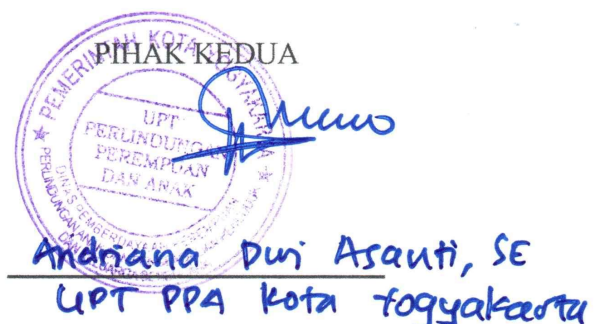 PIHAK KEDUA
PEMERINTAH KOTA YOGYAKARTA
UPT
PERLINDUNGAN
PEREMPUAN
DAN ANAK
DINAS PEMBERDAYAAN PEREMPUAN
PERLINDUNGAN
Andriana Dwi Asanti, SE
UPT PPA Kota Yogyakarta